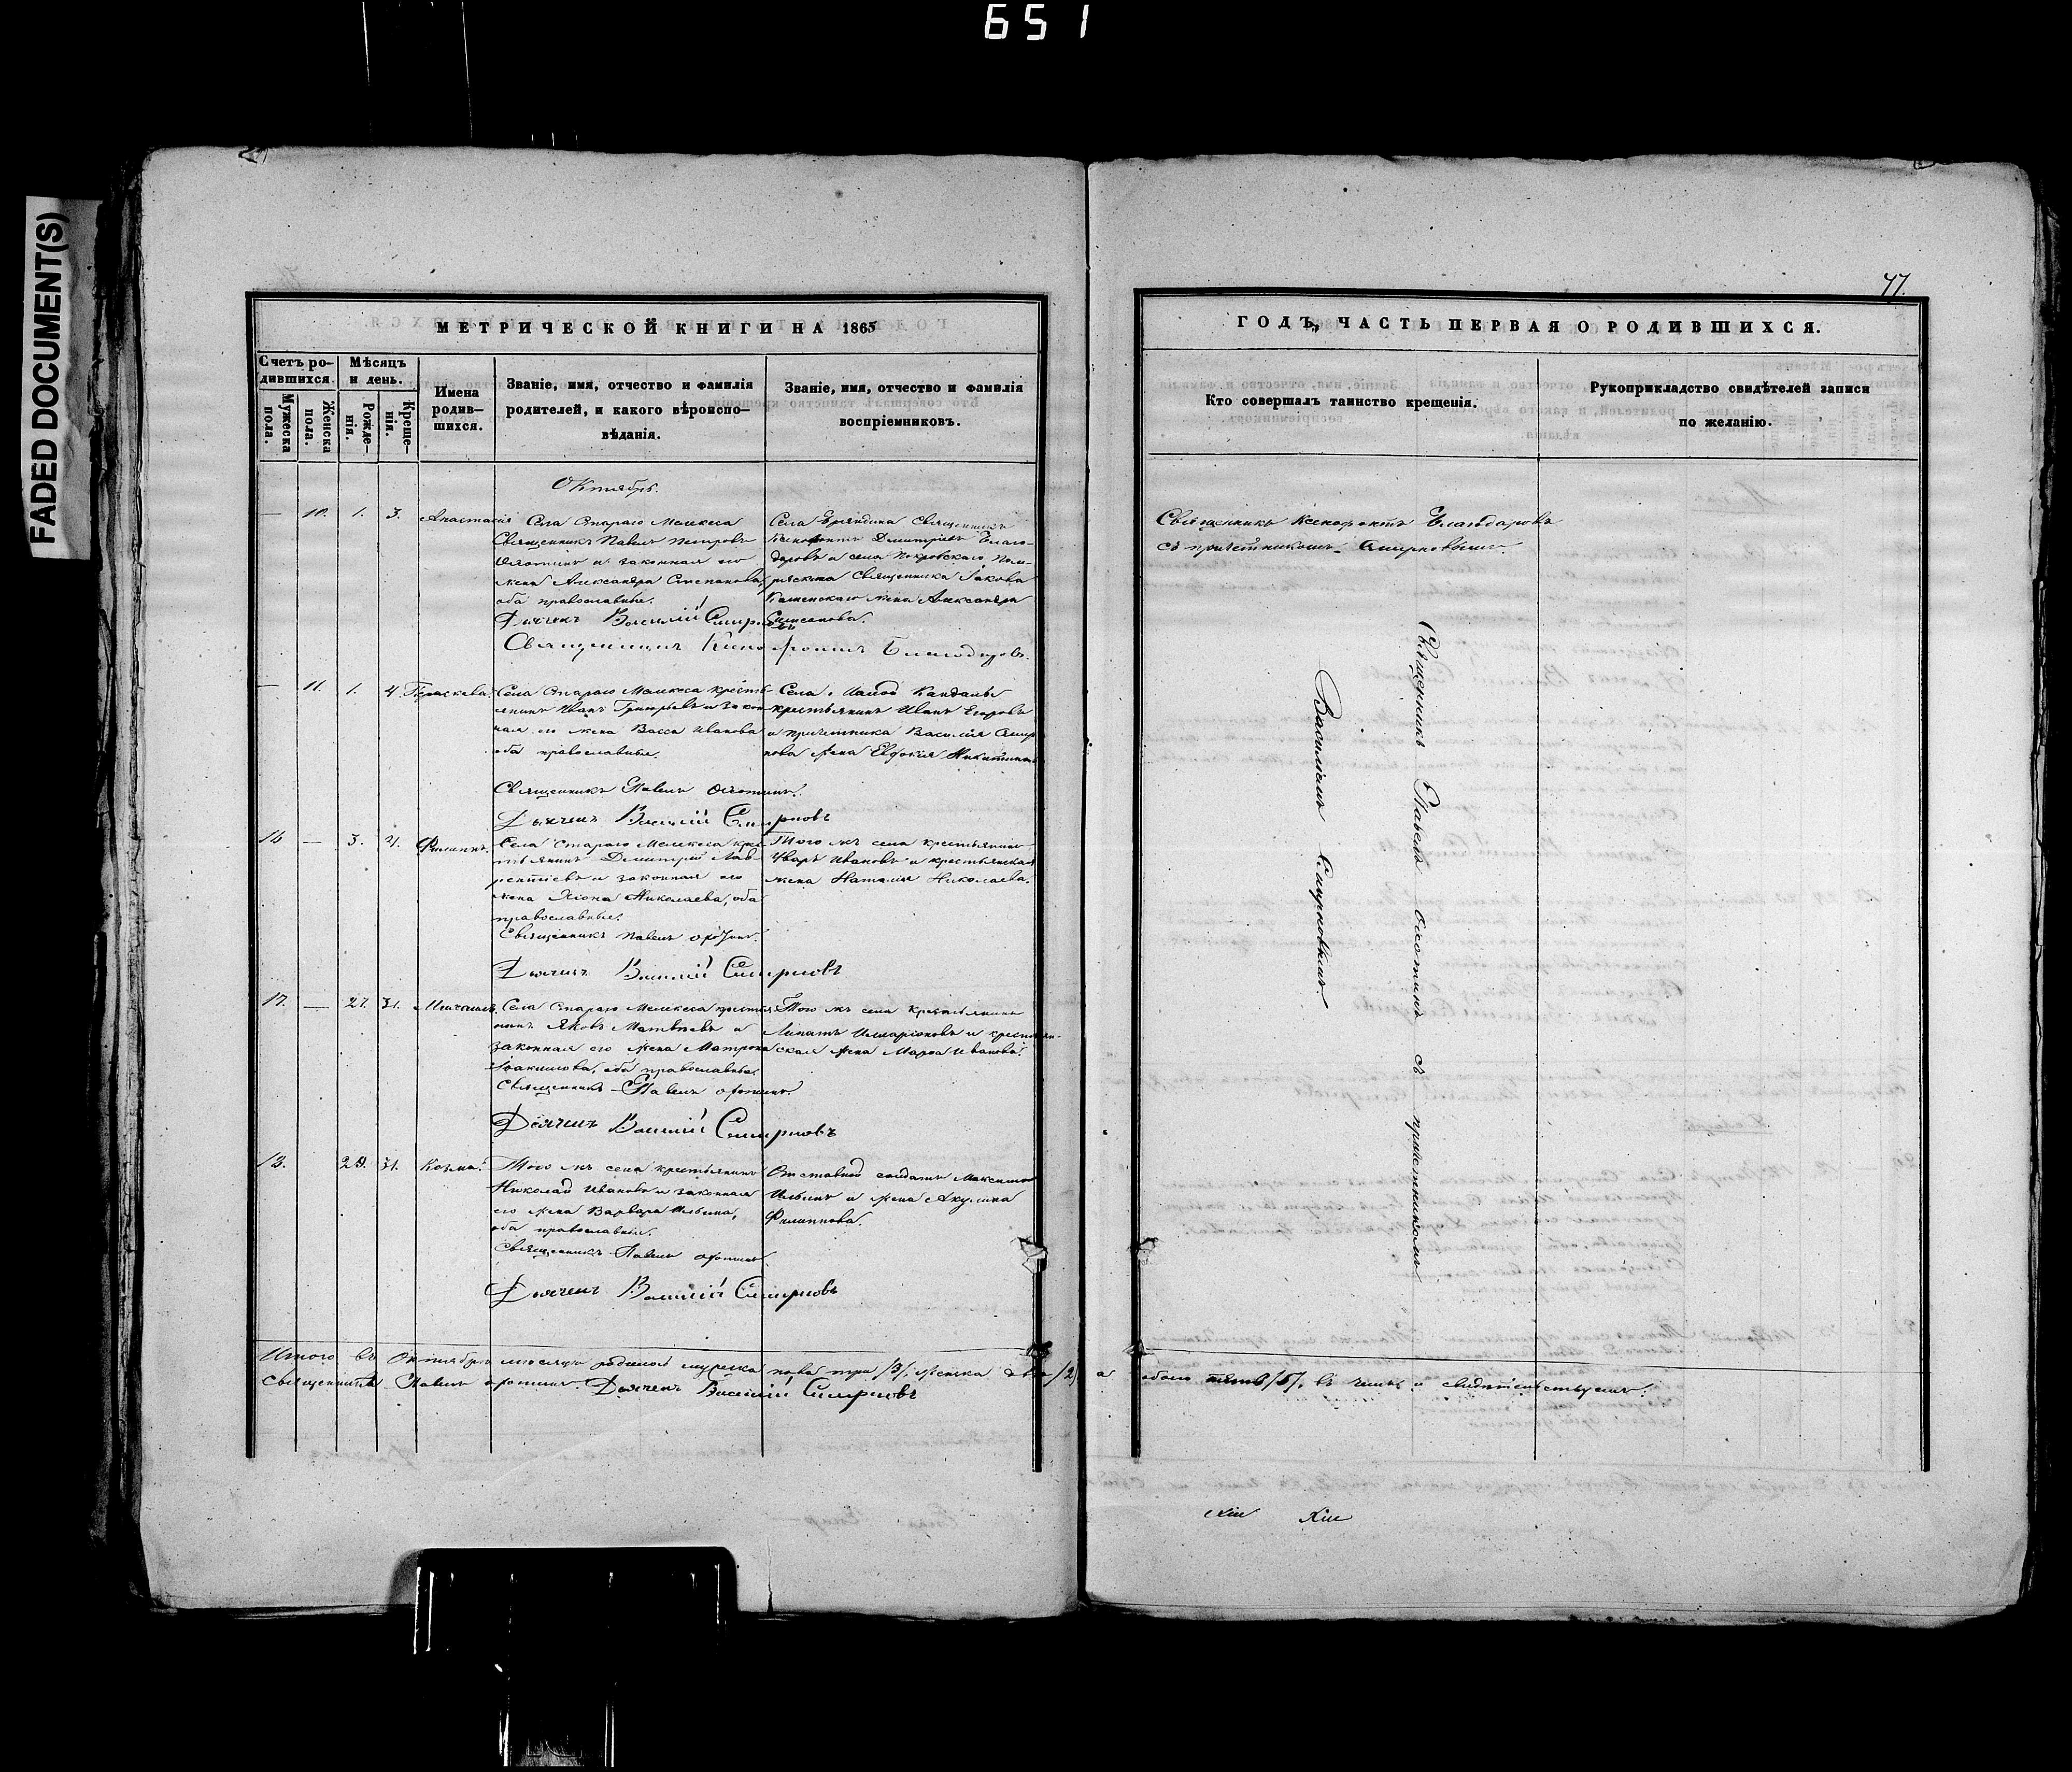 651
FADED DOCUMENT(S)
77.
МЕТРИЧЕСКОЙ КНИГИ НА 1865
Счетъ ро-
дившихся.
Мѣсяцъ
и день.
Мужеска
пола.
Женска
пола.
Рожде-
нія.
Креще-
нія.
Имена
родив-
шихся.
Званіе, имя, отчество и фамилія
родителей, и какого вѣроиспо-
вѣданія.
Званіе, имя, отчество и фамилія
воспріемниковъ.
Октябрь.
— 10. 1. 3. Анастасія
Села Стараго Мелекеса
Священникъ Павелъ Петровъ
Охотинъ и законная его
жена Александра Степанова,
оба православные.
Села священникъ
Ксенофонтъ Димитріевъ Благо-
даровъ и села Покровскаго,
священника Іакова
Каменскаго жена Александра
Дьячекъ Василій Смирновъ
Священникъ Ксенофонтъ Благодаровъ.
— 11. 1. 4. Параскева.
Села Стараго Мелекеса кресть-
янинъ Иванъ Григорьевъ и закон-
ная его жена Васса Иванова
оба православные.
Села Кандалы
крестьянинъ Иванъ Егоровъ
и причетника Василія Смир-
нова жена Евдокія Никитина
Священникъ Павелъ Охотинъ.
Дьячекъ Василій Смирновъ
16. — 3. 4. Филиппъ.
Села Стараго Мелекеса крес-
тьянинъ Димитрій Лав-
рентіевъ и законная его
жена Хіона Николаева, оба
православные.
Того жъ села крестьянинъ
Уваръ Ивановъ и крестьянская
жена Наталія Николаева.
Священникъ Павелъ Охотинъ.
Дьячекъ Василій Смирновъ
17. — 27. 31. Михаилъ.
Села Стараго Мелекеса крестья-
нинъ Яковъ Матвѣевъ и
законная его жена Матрона
Іоакимова, оба православные.
Того жъ села крестьянинъ
Липатъ Иларіоновъ и крестьян-
ская жена Марѳа Иванова.
Священникъ Павелъ Охотинъ.
Дьячекъ Василій Смирновъ
18. 29. 31. Козма.
Того жъ села крестьянинъ
Николай Ивановъ и законная
его жена Варвара Ильина,
оба православные.
Отставной солдатъ Максимъ
Ильинъ и жена Акулина
Филиппова.
Священникъ Павелъ Охотинъ.
Дьячекъ Василій Смирновъ
Итого въ Октябрѣ мѣсяцѣ родилось мужеска пола три /3/, женска два /2/, а обоего пять /5/, въ чемъ и свидѣтельствуемъ:
Священникъ Павелъ Охотинъ. Дьячекъ Василій Смирновъ
ГОДЪ, ЧАСТЬ ПЕРВАЯ О РОДИВШИХСЯ.
Кто совершалъ таинство крещенія.
Рукоприкладство свидѣтелей записи
по желанію.
Священникъ Ксенофонтъ Благодаровъ
съ причетникомъ Смирновымъ.
Священникъ Павелъ Охотинъ съ причетникомъ
Василіемъ Смирновымъ.